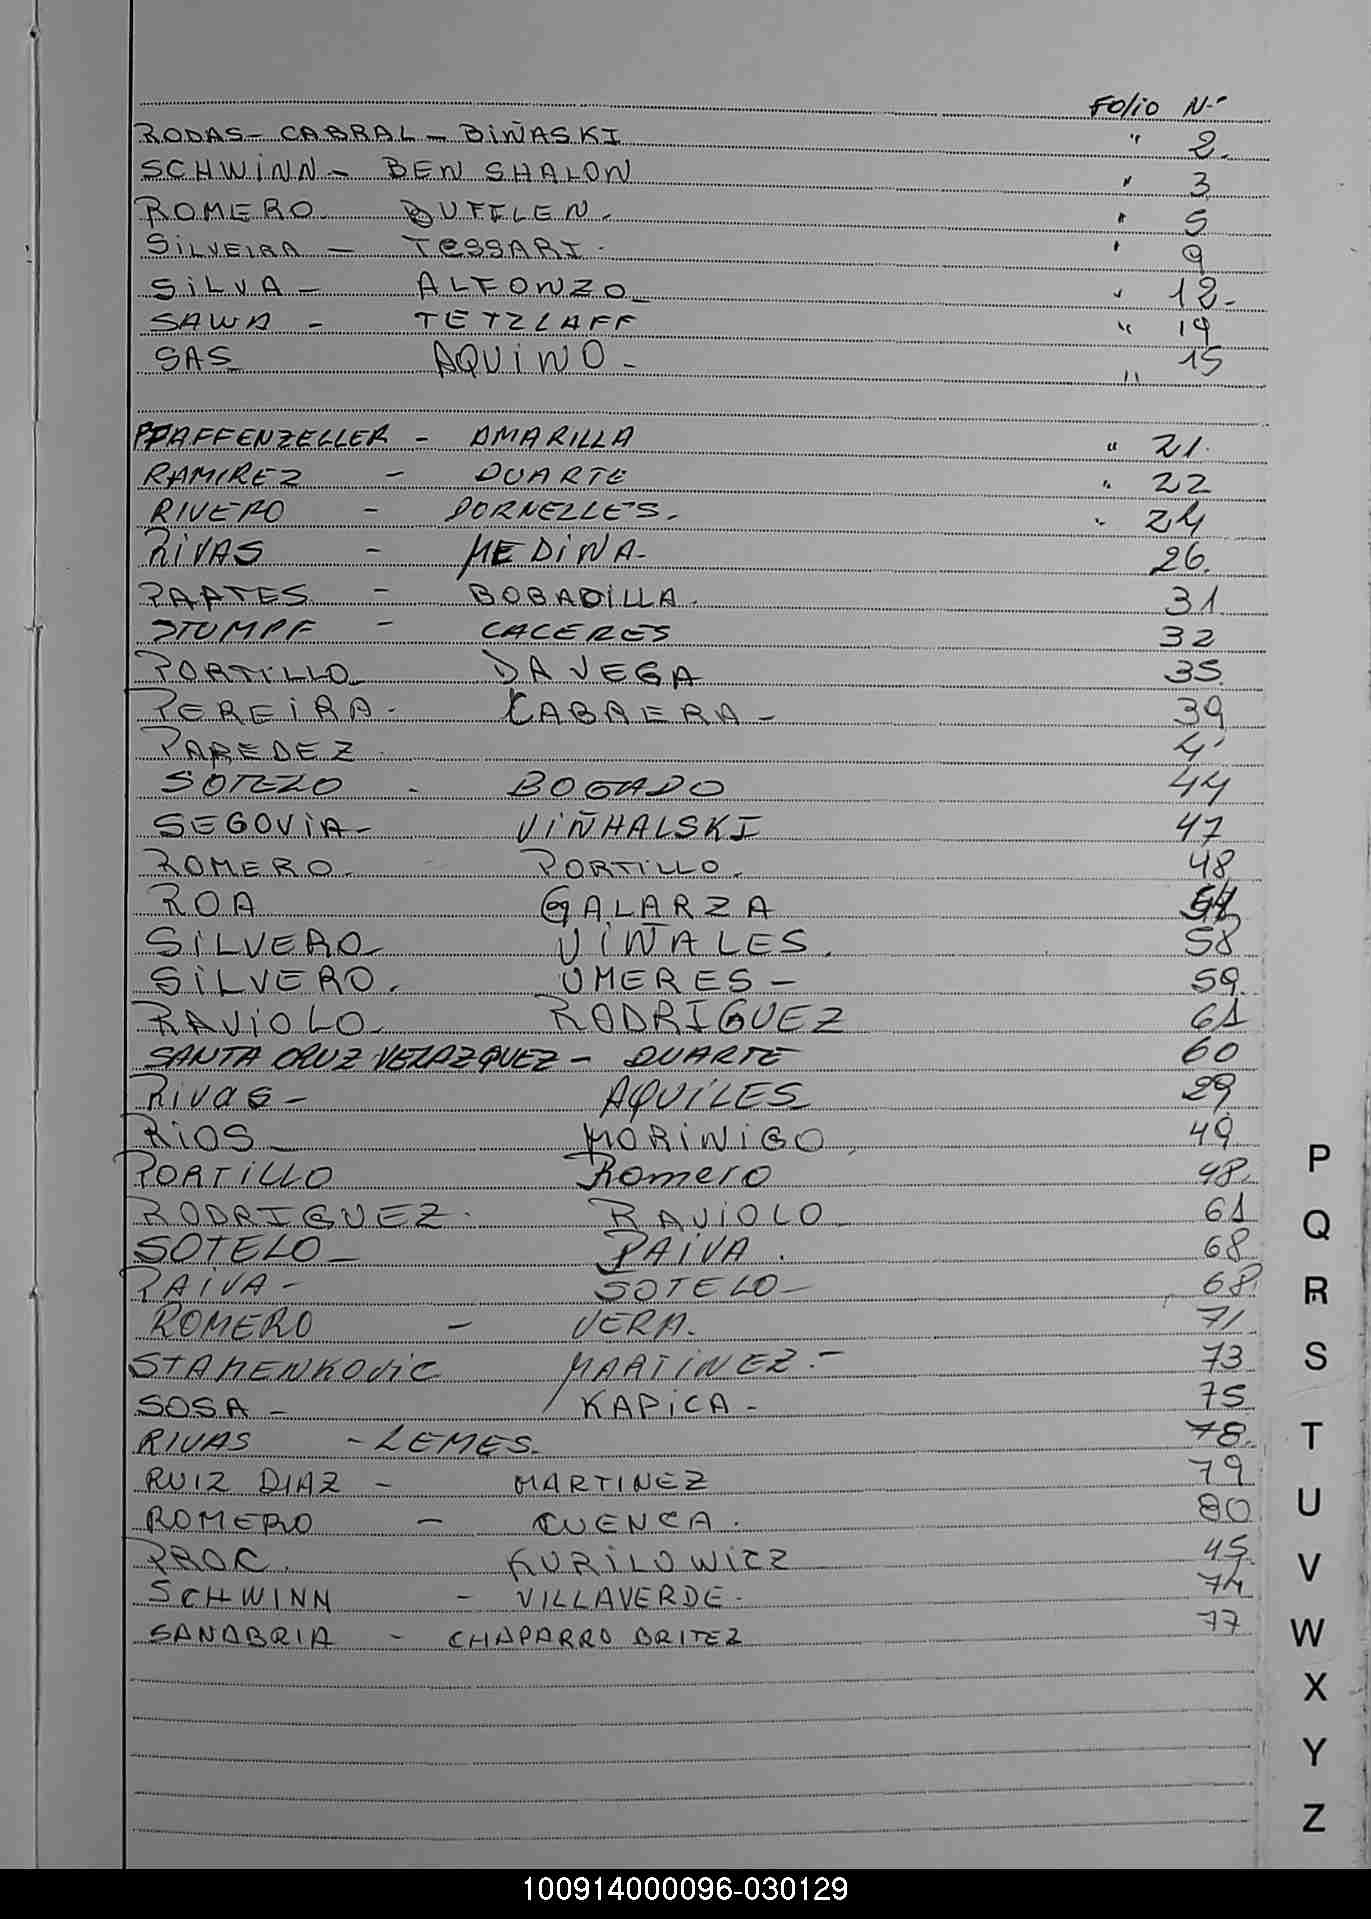 Folio N.-
RODAS - CABRAL - BIÑASKI " 2.
SCHWINN - BEN SHALON " 3
ROMERO. BUFFLEN. " 5
SILVEIRA - TESSARI. " 9
SILVA - ALFONZO " 12-
SAWA - TETZLAFF " 19
SAS AQUINO - " 15
PFAFFENZELLER - AMARILLA " 21.
RAMIREZ - DUARTE " 22
RIVERO - DORNELLES. " 24
RIVAS - MEDINA - 26.
PARTES - BOBADILLA. 31
STUMPF - CACERES 32
PORTILLO DA VEGA 35
PEREIRA - CABRERA - 39
PAREDEZ
SOTELO - BOGADO 44
SEGOVIA - VIÑHALSKI 47
ROMERO. PORTILLO. 48
ROA GALARZA
SILVERO VIÑALES. 58
SILVERO. UMERES - 59
RAVIOLO RODRIGUEZ 61
SANTA CRUZ VELAZQUEZ - DUARTE 60
RIVAS - AQUILES 29
RIOS MORINIGO 49
PORTILLO Romero 48
RODRIGUEZ. RAVIOLO 61
SOTELO - PAIVA. 68
PAIVA - SOTELO - 68
ROMERO - VERA. 71
STAMENKOVIC MARTINEZ.- 73
SOSA - KAPICA - 75
RIVAS - LEMES. 78.
RUIZ DIAZ - MARTINEZ 79
ROMERO - CUENCA. 80
PROC. KURILOWICZ 45
SCHWINN - VILLAVERDE. 74
SANABRIA - CHAPARRO BRITEZ 77
P
Q
R
S
T
U
V
W
X
Y
Z
100914000096-030129